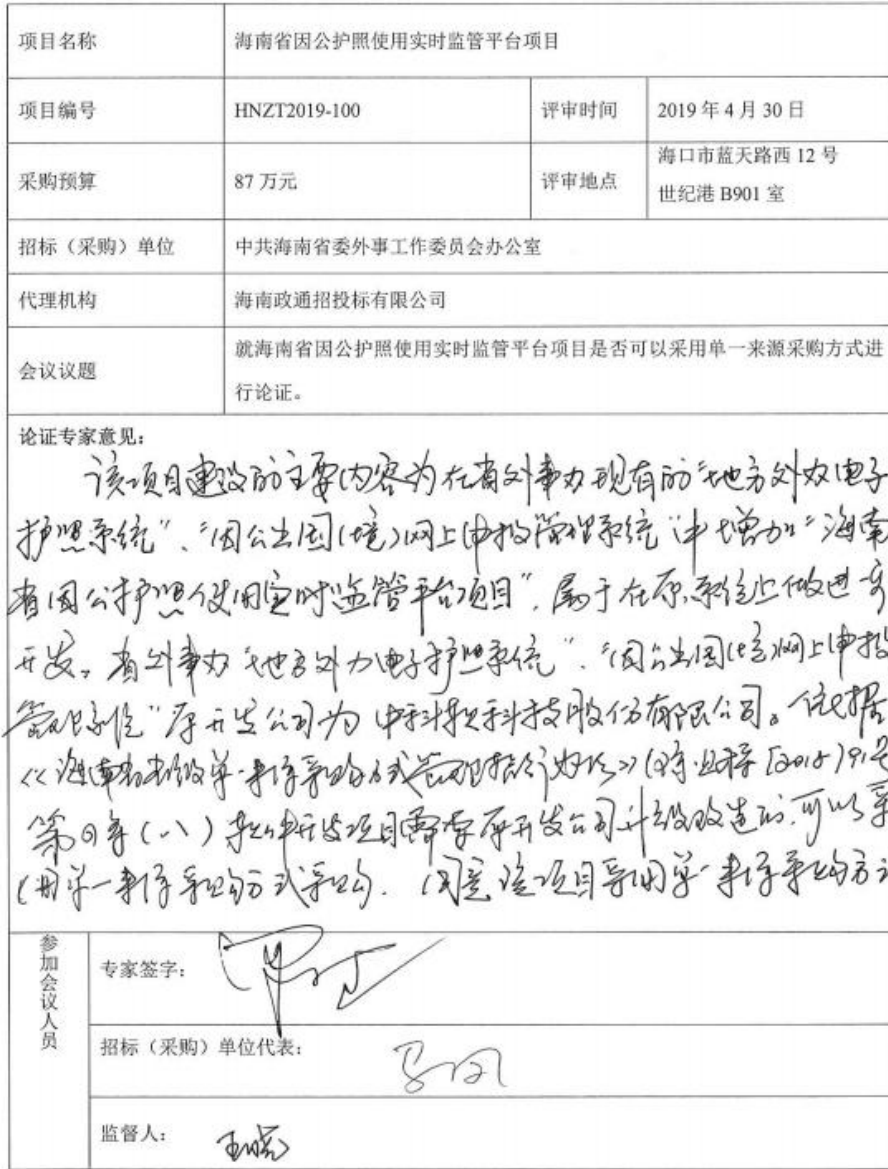 项目名称 海南省因公护照使用实时监管平台项目
项目编号 HNZT2019-100 评审时间 2019 年 4 月 30 日
采购预算 87 万元 评审地点 海口市蓝天路西 12 号
世纪港 B901 室
招标（采购）单位 中共海南省委外事工作委员会办公室
代理机构 海南政通招投标有限公司
会议议题 就海南省因公护照使用实时监管平台项目是否可以采用单一来源采购方式进
行论证。
论证专家意见：
该项目建设的主要内容为在省外事办现有的“地方外办电子
护照系统”、“因公出国（境）网上申报管理系统”中增加“海南
省因公护照使用实时监管平台项目”，属于在原系统上做进一步
开发。省外事办“地方外办电子护照系统”、“因公出国（境）网上申报
管理系统”原开发公司为中科软科技股份有限公司。依据
《海南省省级单一来源采购方式管理暂行办法》
第四条（八）软件开发项目需要原开发公司升级改造的，可以采
用单一来源采购方式采购．同意该项目采用单一来源采购方式
参加会议人员
专家签字：
招标（采购）单位代表：
监督人：